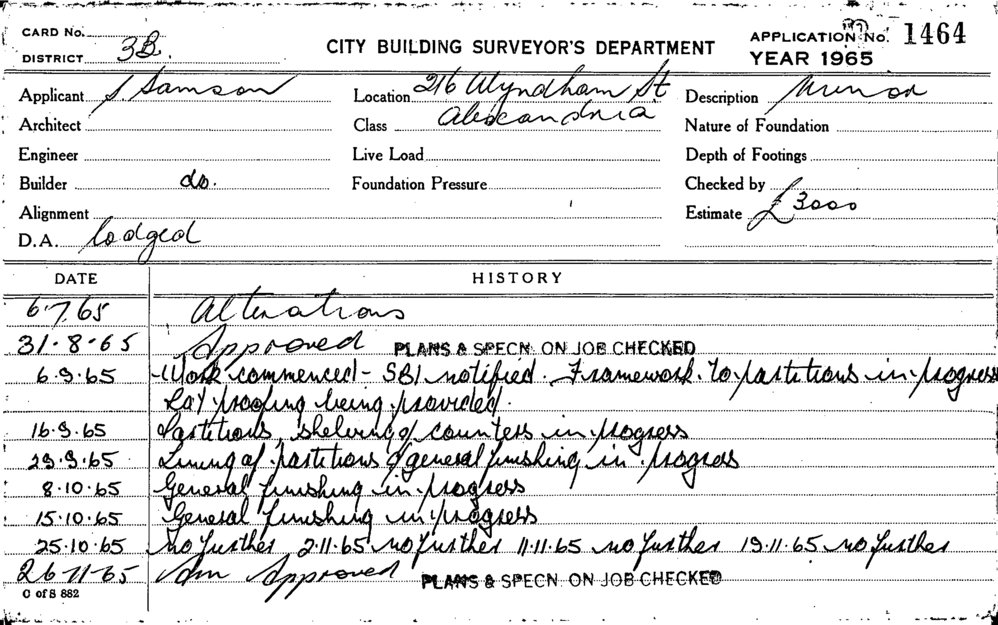 CARD No.
DISTRICT 3B.
CITY BUILDING SURVEYOR'S DEPARTMENT
APPLICATION No. 1464
YEAR 1965
Applicant S. Samson
Location 216 Wyndham St
Alexandria
Description Minor
Architect
Class
Nature of Foundation
Engineer
Live Load
Depth of Footings
Builder do.
Foundation Pressure
Checked by
Alignment
Estimate £3000
D.A. lodged
DATE HISTORY
6.7.65 Alterations
31.8.65 Approved PLANS & SPECN. ON JOB CHECKED
6.9.65 Work commenced - SBI notified. Framework to partitions in progress
Rat proofing being provided.
16.9.65 Partitions, shelving & counters in progress
29.9.65 Lining of partitions & general finishing in progress
8.10.65 General finishing in progress
15.10.65 General finishing in progress
25.10.65 no further 2.11.65 no further 11.11.65 no further 19.11.65 no further
26-11-65 Approved PLANS & SPECN. ON JOB CHECKED
C of S 882